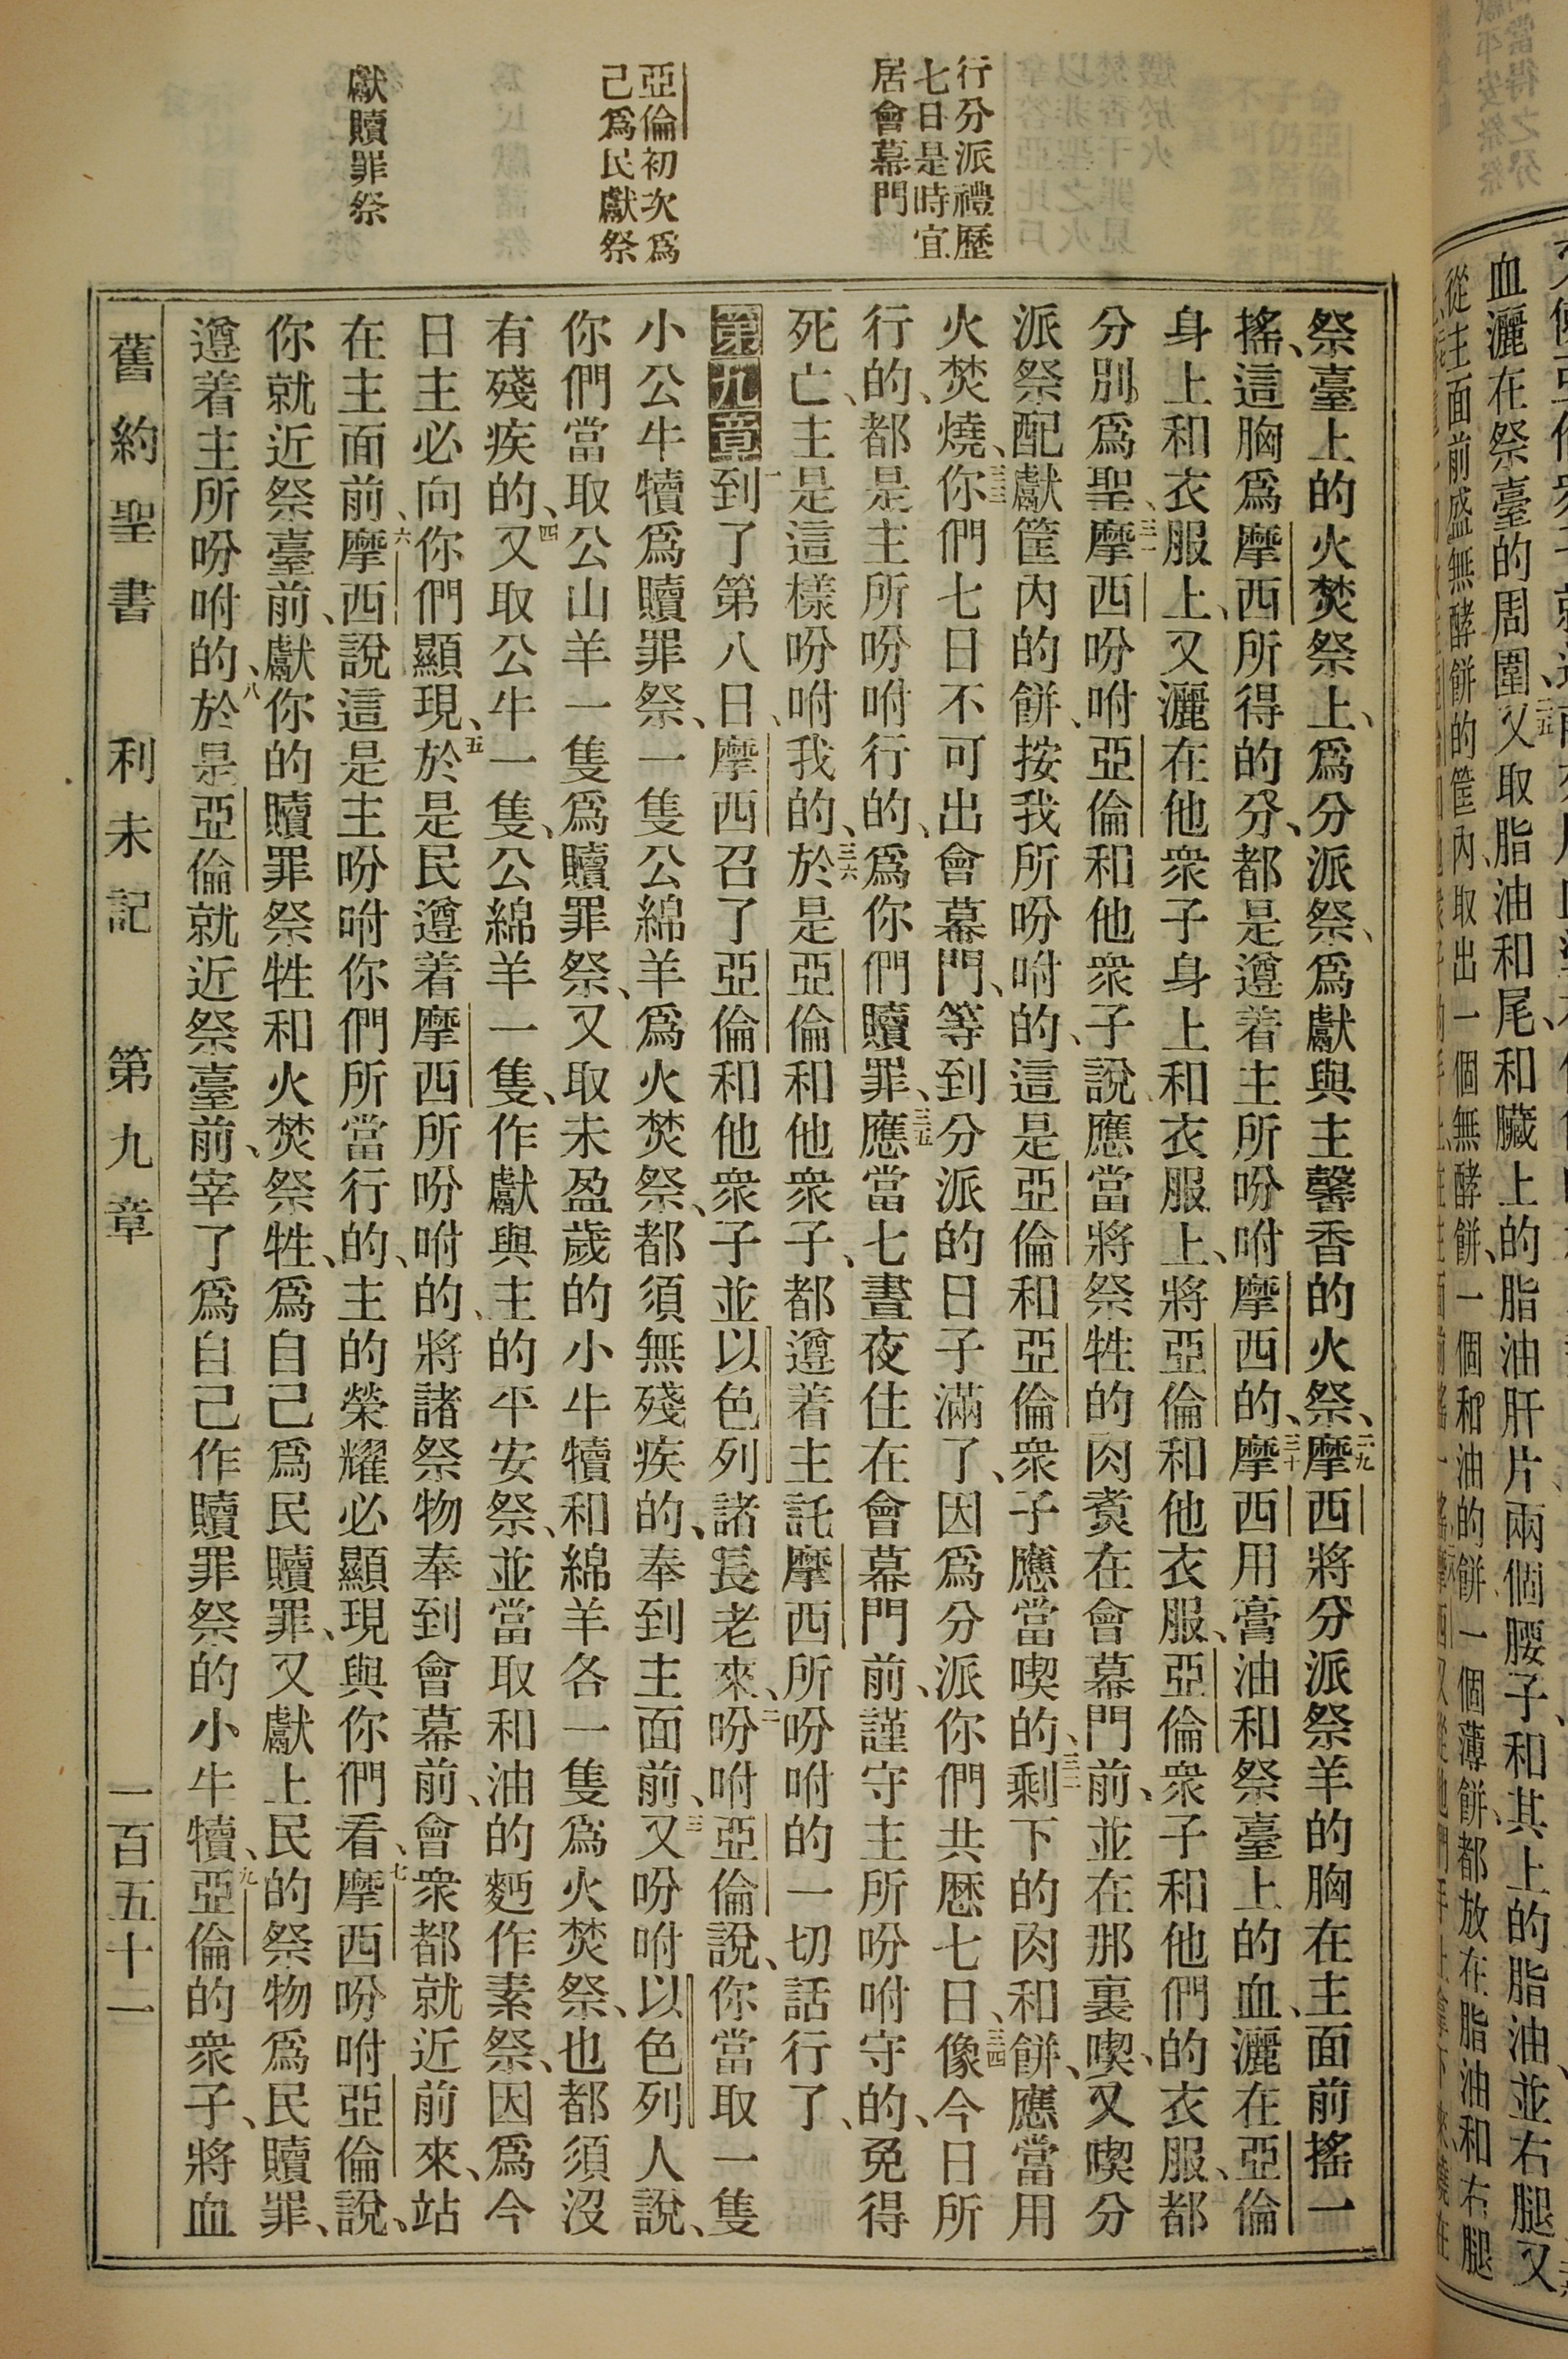 行分派禮歷
七日是時宜
居會幕門
亞倫初次為
己為民獻祭
獻贖罪祭
祭臺上的火焚祭上、為分派祭、為獻與主馨香的火祭、二九摩西將分派祭羊的胸在主面前搖一
搖、這胸為摩西所得的分、都是遵着主所吩咐摩西的、三十摩西用膏油和祭臺上的血、灑在亞倫
身上和衣服上、又灑在他衆子身上和衣服上、將亞倫和他衣服、亞倫衆子和他們的衣服、都
分別為聖、三一摩西吩咐亞倫和他衆子說、應當將祭牲的肉煑在會幕門前、並在那裏喫、又喫分
派祭配獻筐內的餅、按我所吩咐的、這是亞倫和亞倫衆子應當喫的、三二剩下的肉和餅、應當用
火焚燒、三三你們七日不可出會幕門、等到分派的日子滿了、因為分派你們共歷七日、三四像今日所
行的、都是主所吩咐行的、為你們贖罪、三五應當七晝夜住在會幕門前、謹守主所吩咐守的、免得
死亡、主是這樣吩咐我的、三六於是亞倫和他衆子、都遵着主託摩西所吩咐的一切話行了、
第九章一到了第八日、摩西召了亞倫和他衆子並以色列諸長老來、二吩咐亞倫說、你當取一隻
小公牛犢為贖罪祭、一隻公綿羊為火焚祭、都須無殘疾的、奉到主面前、三又吩咐以色列人說、
你們當取公山羊一隻為贖罪祭、又取未盈歲的小牛犢和綿羊各一隻為火焚祭、也都須沒
有殘疾的、四又取公牛一隻、公綿羊一隻、作獻與主的平安祭、並當取和油的麪作素祭、因為今
日主必向你們顯現、五於是民遵着摩西所吩咐的、將諸祭物奉到會幕前、會衆都就近前來、站
在主面前、六摩西說這是主吩咐你們所當行的、主的榮耀必顯現與你們看、七摩西吩咐亞倫說、
你就近祭臺前、獻你的贖罪祭牲和火焚祭牲、為自己為民贖罪、又獻上民的祭物為民贖罪、
遵着主所吩咐的、八於是亞倫就近祭臺前、宰了為自己作贖罪祭的小牛犢、九亞倫的衆子、將血
舊約聖書　利未記　第九章　一百五十一
血灑在祭臺的周圍、又取脂油和尾和臟上的脂油肝片兩個腰子、和其上的脂油、並右腿、又
從主面前盛無酵餅的筐內、取出一個無酵餅、一個和油的餅、一個薄餅、都放在脂油和右腿